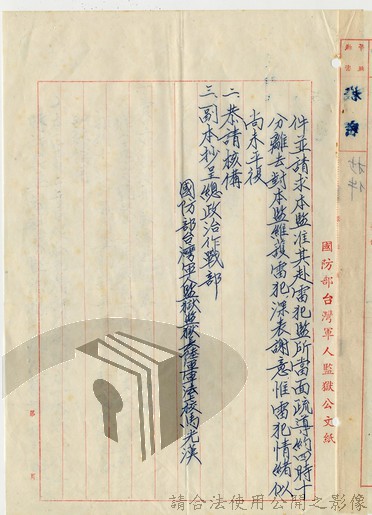 國防部台灣軍人監獄公文紙
件並請求本監准其赴雷犯監所當面疏導約四時十
分離去對本監維護雷犯深表謝意惟雷犯情緒似
尚未平復
二恭請核備
三副本抄呈總政治作戰部
國防部台灣軍人監獄監獄長陸軍軍法上校馬光漢
第 頁
請合法使用公開之影像